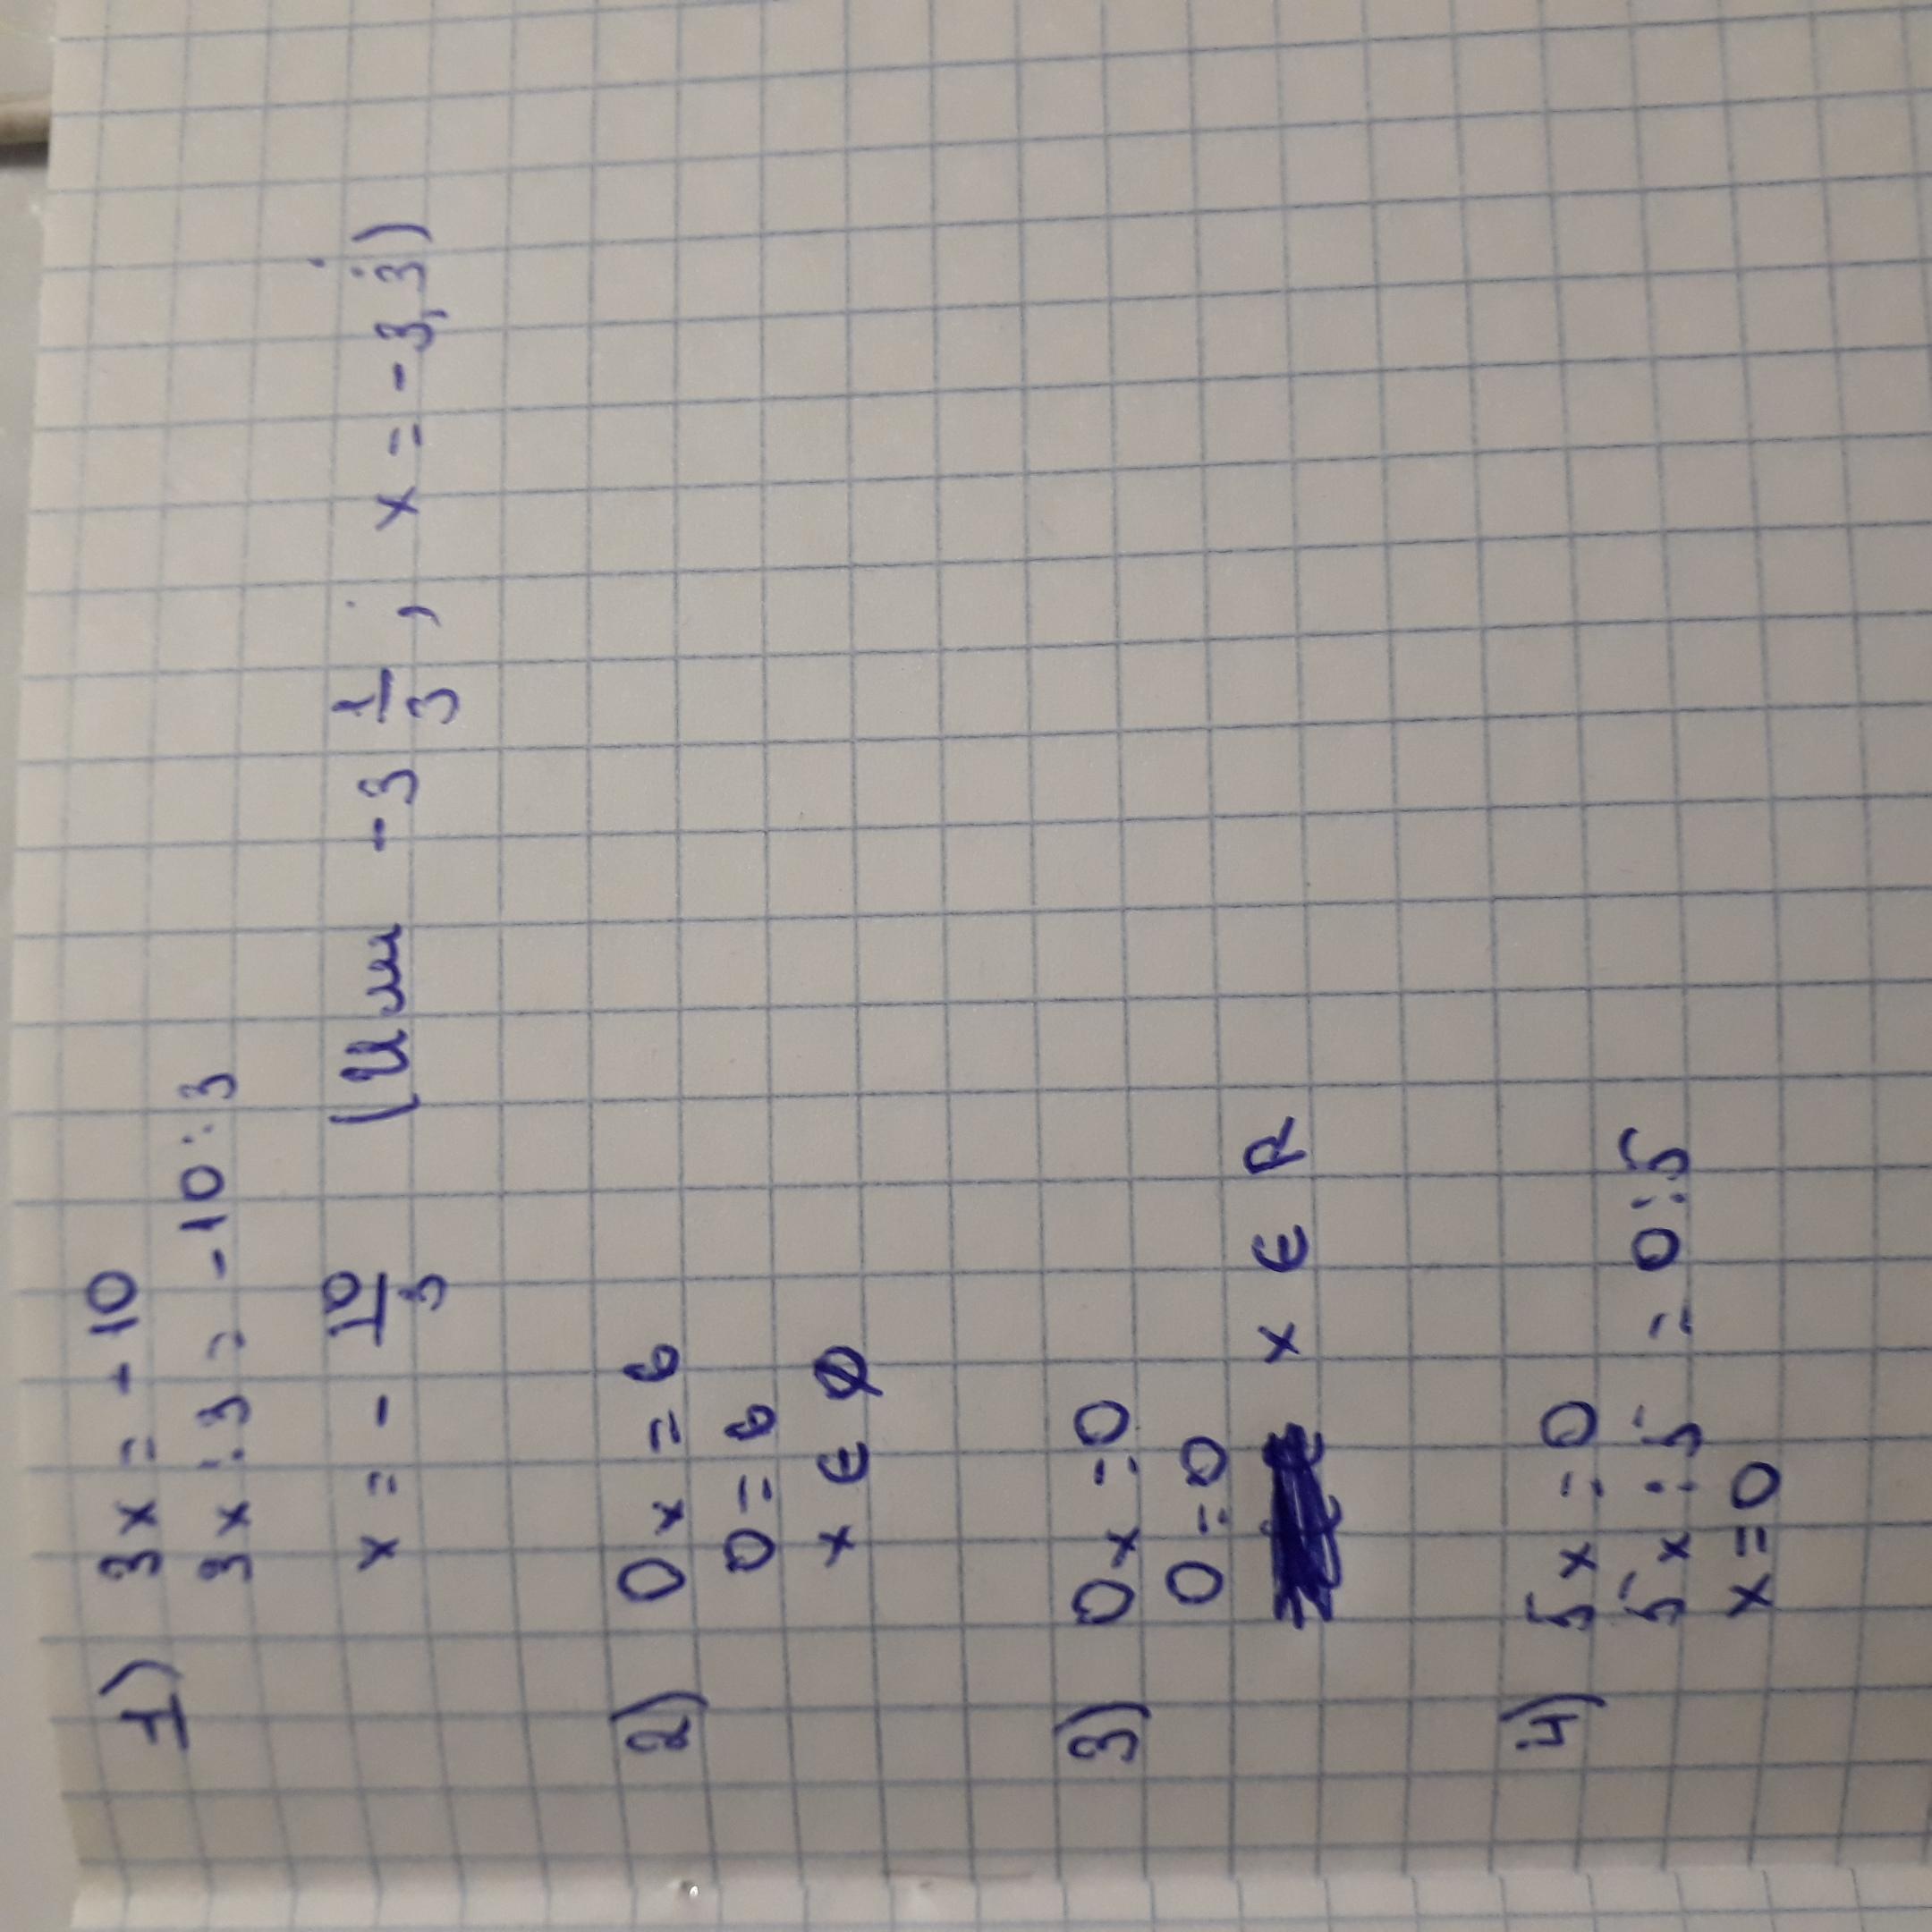 1) 3x = -10
3x : 3 = -10 : 3
x = - 10/3 (Или -3 1/3 ; x = -3,3̇)
2) 0x = 6
0 = 6
x ∈ ∅
3) 0x = 0
0 = 0
x ∈ R
4) 5x = 0
5x : 5 = 0 : 5
x = 0